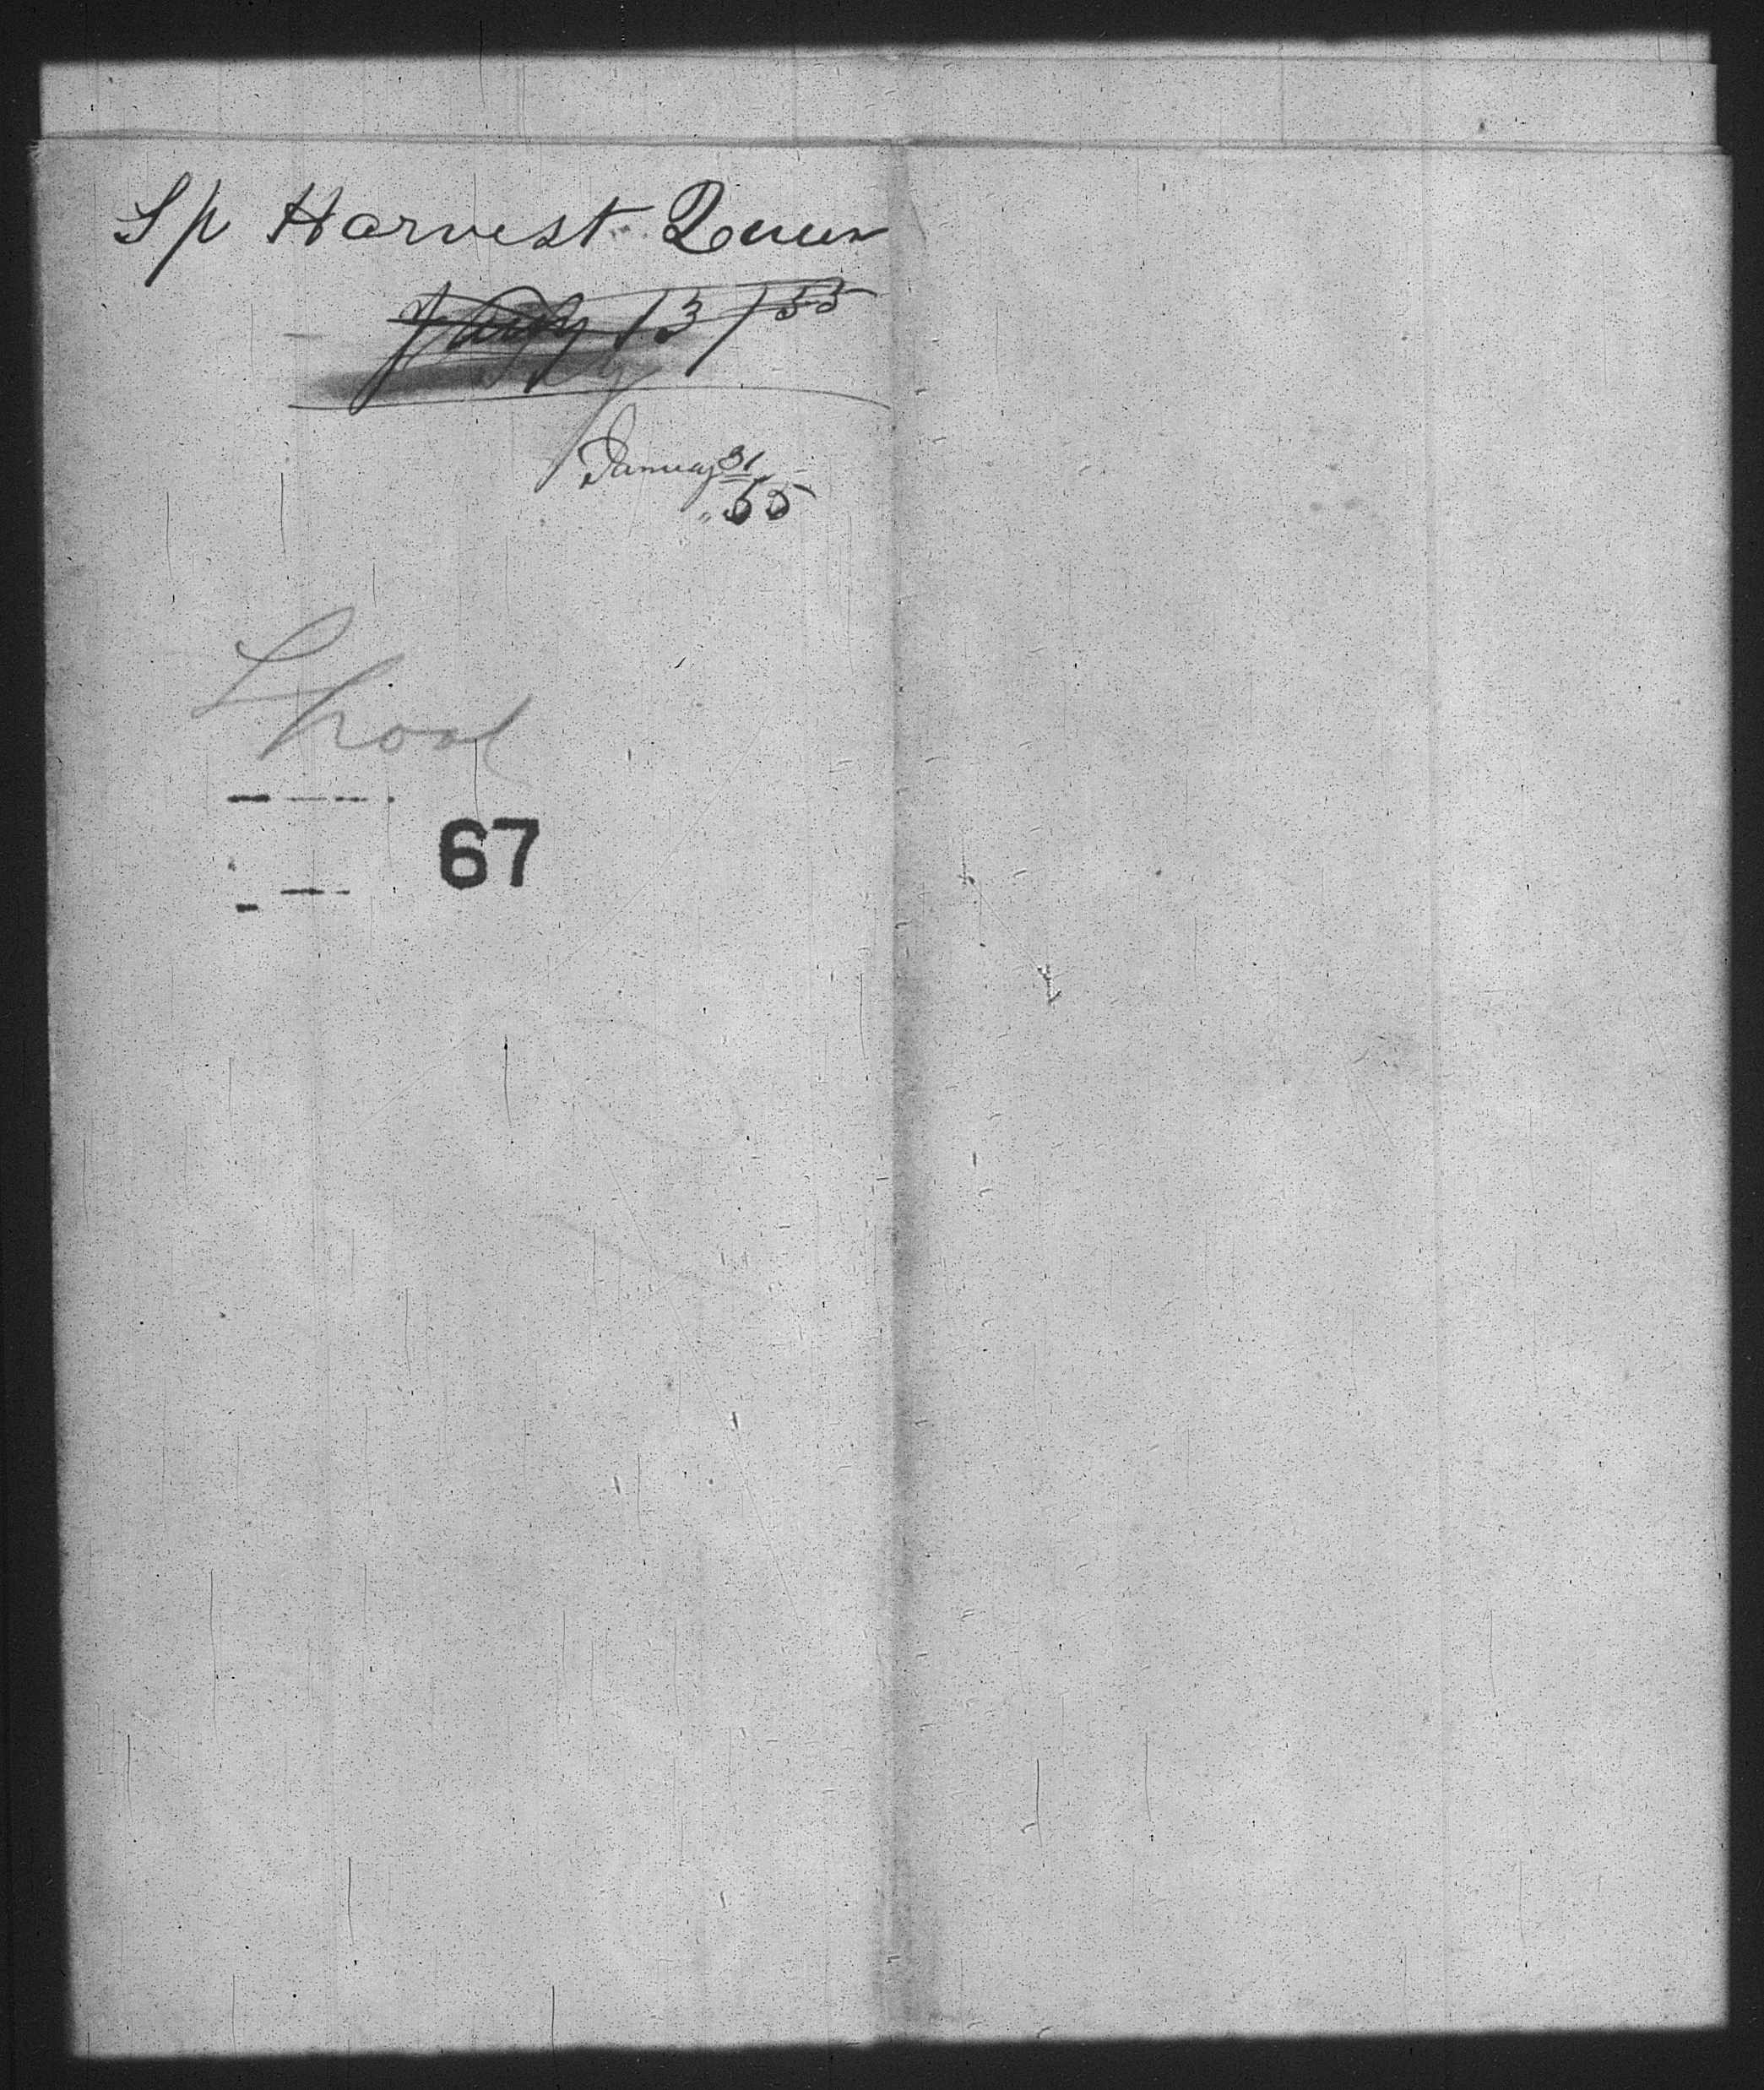 Sp Harvest Queen
Jany 13 / 55
January 31
" 55
Lpool
67